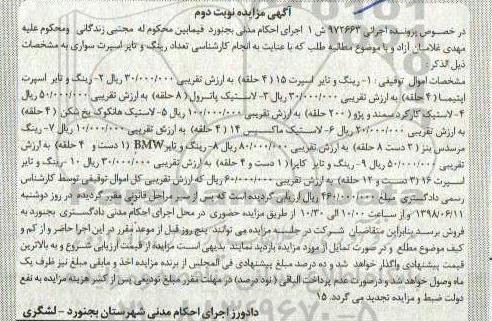 آگهی مزایده نوبت دوم
در خصوص پرونده اجرائی ۹۷۲۶۶۳ ش ۱ اجرای احکام مدنی بجنورد فیمابین محکوم له مجتبی زندگانی ومحکوم علیه
مهدی غلامیان آزاد و با موضوع مطالبه طلب که با عنایت به انجام کارشناسی تعداد رینگ و تایر اسپرت سواری به مشخصات
ذیل الذکر:
مشخصات اموال توقیفی : ۱- رینگ و تایر اسپرت ۱۵ ( ۴ حلقه) به ارزش تقریبی ۳۰/۰۰۰/۰۰۰ ریال ۲- رینگ و تایر اسپرت
اپتیما ( ۴ حلقه) به ارزش تقریبی ۳۰/۰۰۰/۰۰۰ ریال ۳- لاستیک پاترول ( ۸ حلقه) به ارزش تقریبی ۵۰/۰۰۰/۰۰۰ ریال
۴- لاستیک کارکرد سمند و پژو ( ۲۰۰ حلقه) به ارزش تقریبی ۱۰۰/۰۰۰/۰۰۰ ریال ۵- لاستیک هانکوک یخ شکن ( ۴ حلقه)
به ارزش تقریبی ۲۰/۰۰۰/۰۰۰ ریال ۶- لاستیک ماکسیس ۱۴ ( ۴ حلقه) به ارزش تقریبی ۱۰/۰۰۰/۰۰۰ ریال ۷- رینگ
مرسدس بنز ( ۲ دست ۸ حلقه) به ارزش تقریبی ۸۰/۰۰۰/۰۰۰ ریال ۸- رینگ و تایر BMW (۱ دست و ۴ حلقه) به ارزش
تقریبی ۵۰/۰۰۰/۰۰۰ ریال ۹- رینگ و تایر کاپرا ( ۱ دست و ۴ حلقه) به ارزش تقریبی ۳۰/۰۰۰/۰۰۰ ریال ۱۰- رینگ و تایر
اسپرت ۱۶ (۳ دست و ۱۲ حلقه) به ارزش تقریبی ۶۰/۰۰۰/۰۰۰ ریال که ارزش تقریبی کل اموال توقیفی توسط کارشناس
رسمی دادگستری مبلغ ۴۶۰/۰۰۰/۰۰۰ ریال ارزیابی گردیده است که پس از سیر مراحل قانونی مقرر گردیده در روز دوشنبه
۱۳۹۸/۰۶/۱۱ و از ساعت ۱۰/۰۰ الی ۱۰/۳۰ از طریق مزایده حضوری در محل اجرای احکام مدنی دادگستری بجنورد به
فروش برسد بنابراین متقاضیان شرکت در جلسه مزایده می توانند پنج روز قبل از موعد مقرر در این اجرا حاضر و از کم و
کیف موضوع مطلع و در صورت تمایل از مورد مزایده بازدید نمایند بدیهی است مزایده از قیمت ارزیابی شروع و به بالاترین
قیمت پیشنهادی واگذار خواهد شد و ده درصد مبلغ پیشنهادی فی المجلس از برنده مزایده اخذ و مابقی مبلغ نیز ظرف یک
ماه وصول خواهد شد و درصورت عدم پرداخت الباقی ( نود درصد) در مهلت مقرر مبلغ تودیعی پس از کسر هزینه مزایده به نفع
دولت ضبط و مزایده تجدید می گردد. ۱۵
دادورز اجرای احکام مدنی شهرستان بجنورد - لشگری